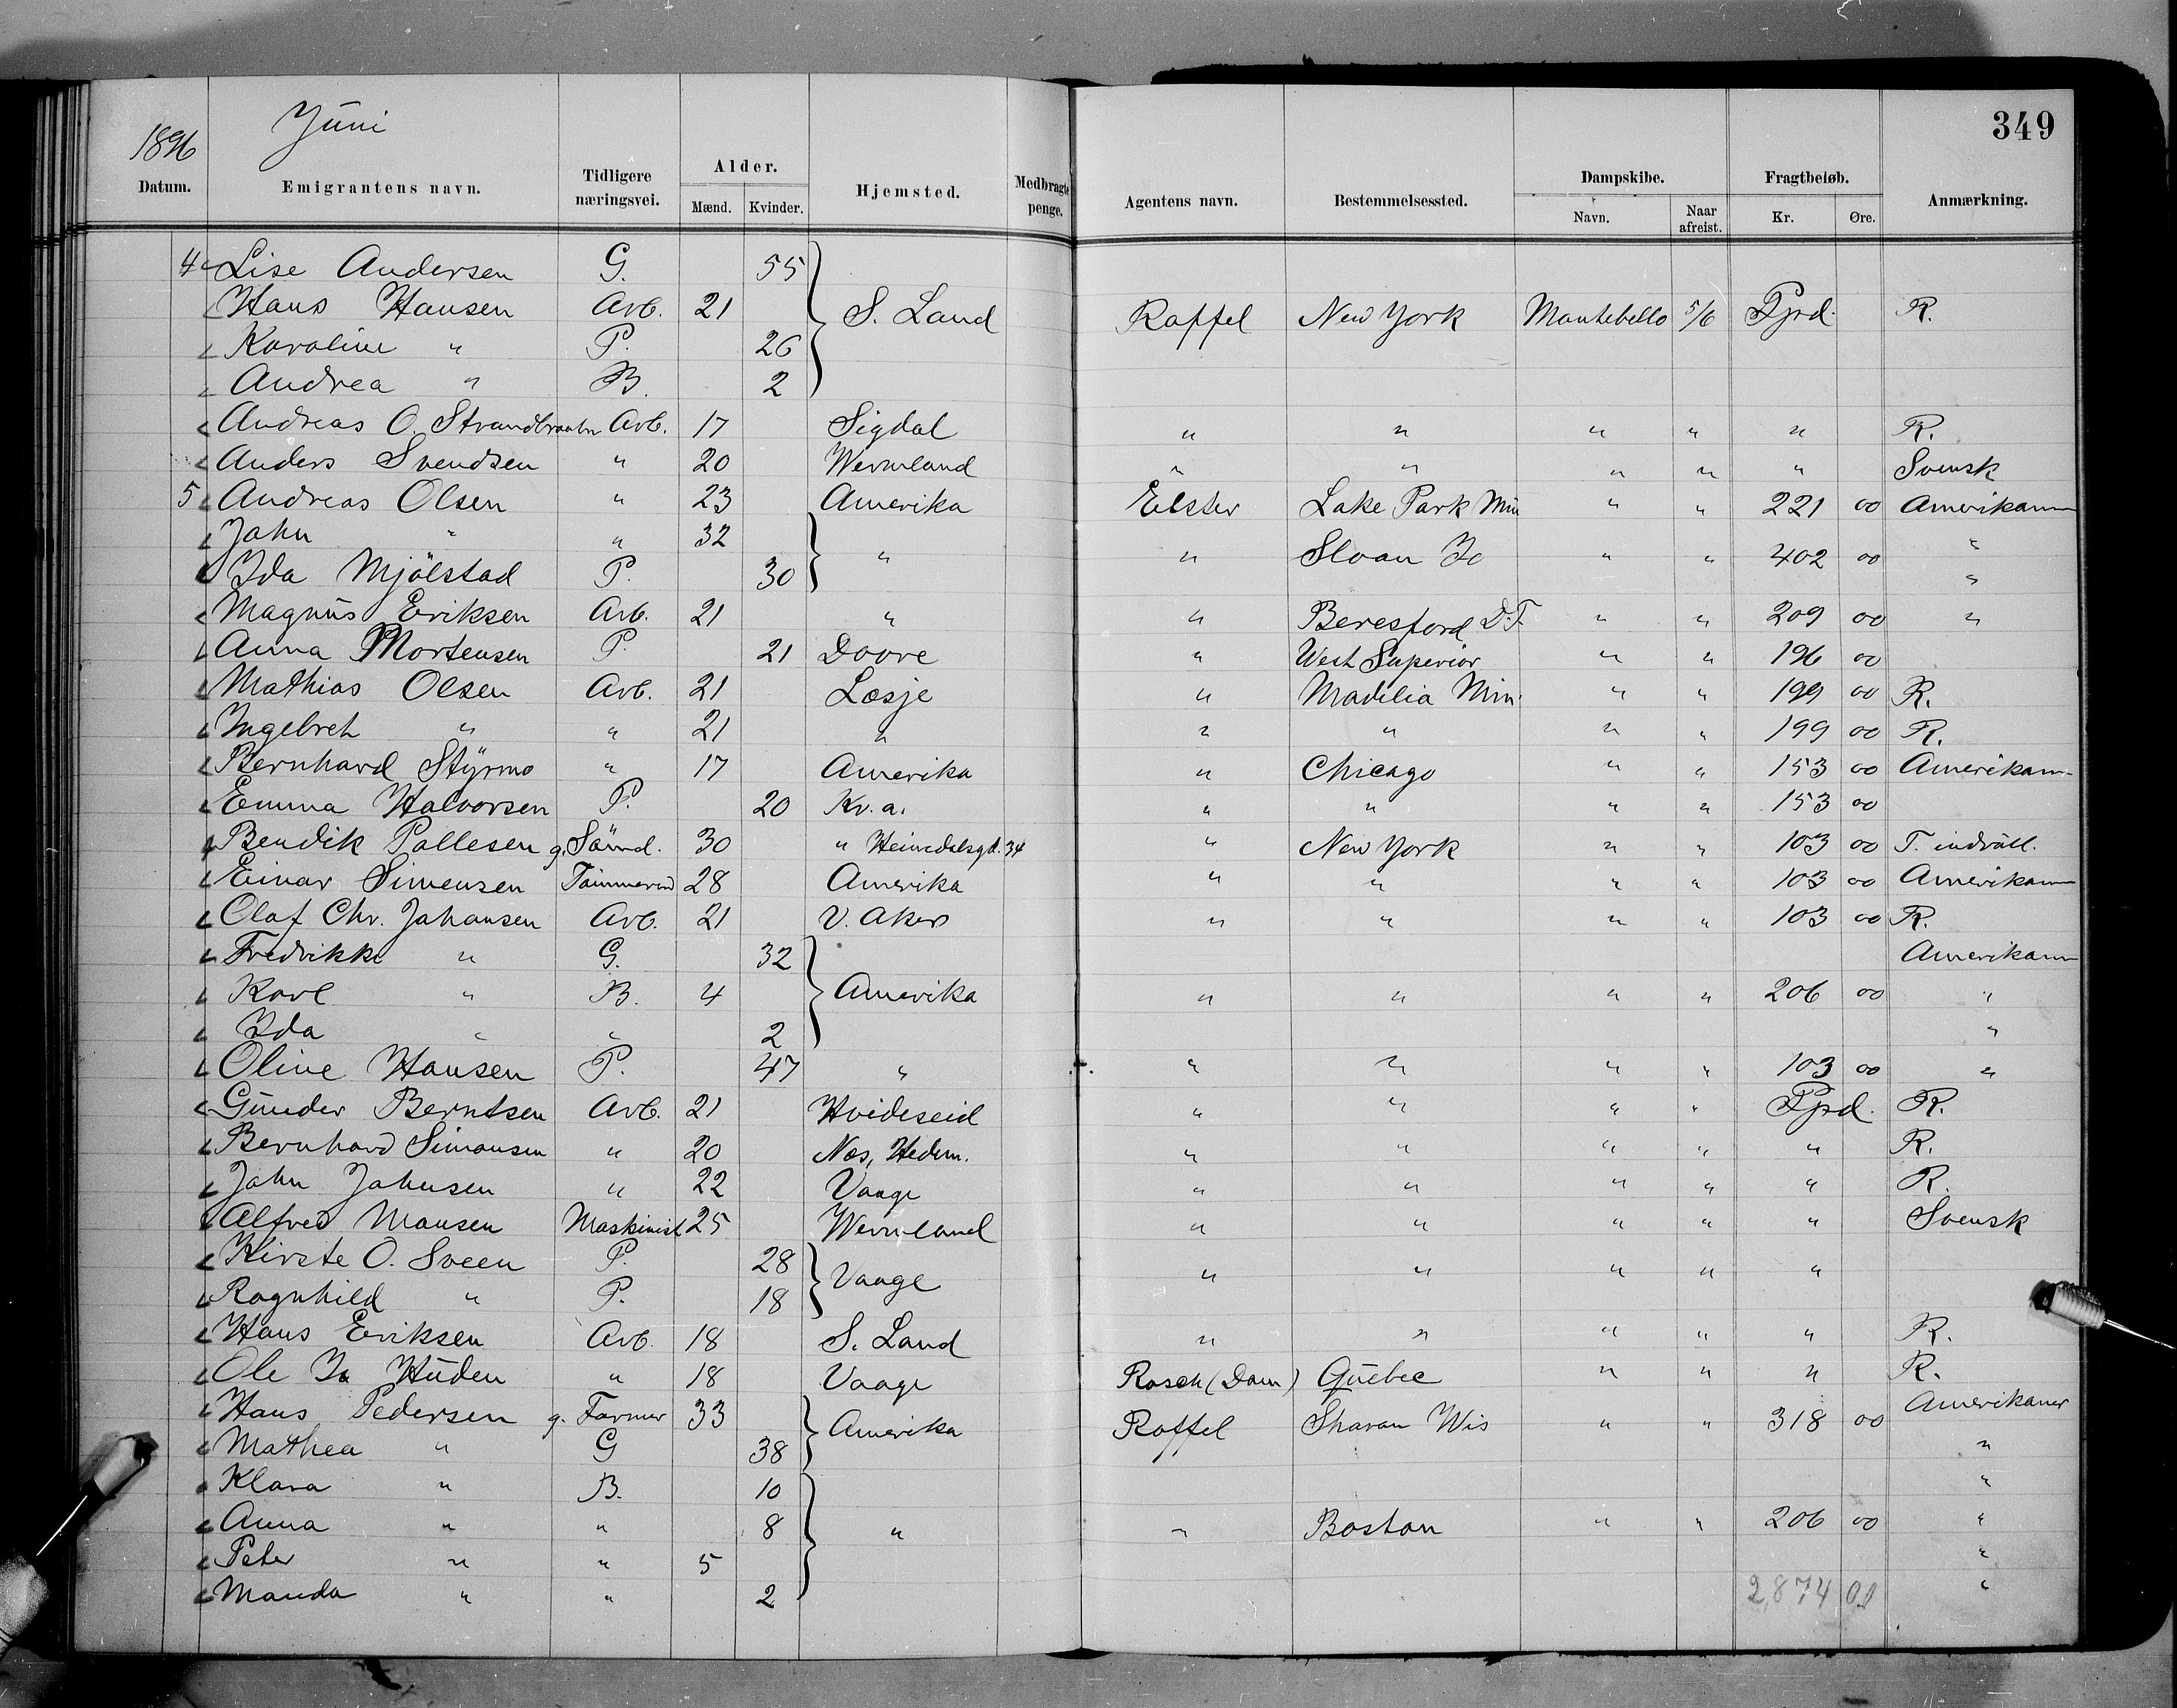 349
1896 Juni
Datum. Emigrantens navn. Tidligere næringsvei. Alder. Mænd. Kvinder. Hjemsted. Medbragte penge. Agentens navn. Bestemmelsessted. Dampskibe. Navn. Naar afreist. Fragtbeløb. Kr. Øre. Anmærkning.
4 Lise Andersen G. 55
Hans Hansen Arb. 21 S. Land Raffel New York Montebello 5/6 Pprd. R.
Karoline " P. 26
Andrea " B. 2
Andreas O. Strandbraaten Arb. 17 Sigdal " " " " " R.
Anders Svendsen " 20 Wermland " " " " " Svensk
5 Andreas Olsen " 23 Amerika Elster Lake Park Min " " 221 00 Amerikaner
John " " 32 " " Sloan Io " " 402 00 "
Ida Mjölstad P. 30 "
Magnus Eriksen Arb. 21 " " Beresford D.T. " " 209 00 "
Anna Mortensen P. 21 Dovre " West Superior " " 196 00
Mathias Olsen Arb. 21 Lesje " Madilia Min. " " 199 00 R.
Ingebret " " 21 " " " " " 199 00 R.
Bernhard Styrmo " 17 Amerika " Chicago " " 153 00 Amerikaner
Emma Halvorsen P. 20 Kr. a. " " " " 153 00
Bendik Pallesen g. Sömd. 30 " Heimdalsgd. 34 " New York " " 103 00 T. indrull.
Einar Simensen Tømmermd 28 Amerika " " " " 103 00 Amerikaner
Olaf Chr. Johansen Arb. 21 V. Aker " " " " 103 00 R.
Fredrikke " G. 32 Amerikaner
Karl " B. 4 Amerika " " " " 206 00 "
Ida " " 2 "
Oline Hansen P. 47 " " " " " 103 00 "
Gunder Berntsen Arb. 21 Hvideseid " " " " Pprd. R.
Bernhard Simonsen " 20 Nes, Hedem. " " " " " R.
John Johnsen " 22 Vaage " " " " " R.
Alfred Monsen Maskinist 25 Wermland " " " " " Svensk
Kirste O. Sveen P. 28 Vaage " " " " "
Ragnhild " P. 18
Hans Eriksen Arb. 18 S. Land " " " " " R.
Ole Iv Huden " 18 Vaage Rosch (Dom) Quebec " " " R.
Hans Pedersen g. Farmer 33 Amerika Raffel Sharon Wis " " 318 00 Amerikaner
Mathea " G 38 "
Klara " B. 10 "
Anna " " 8 " " Boston " " 206 00 "
Peter " " 5 "
Manda " " 2 "
2,874 00